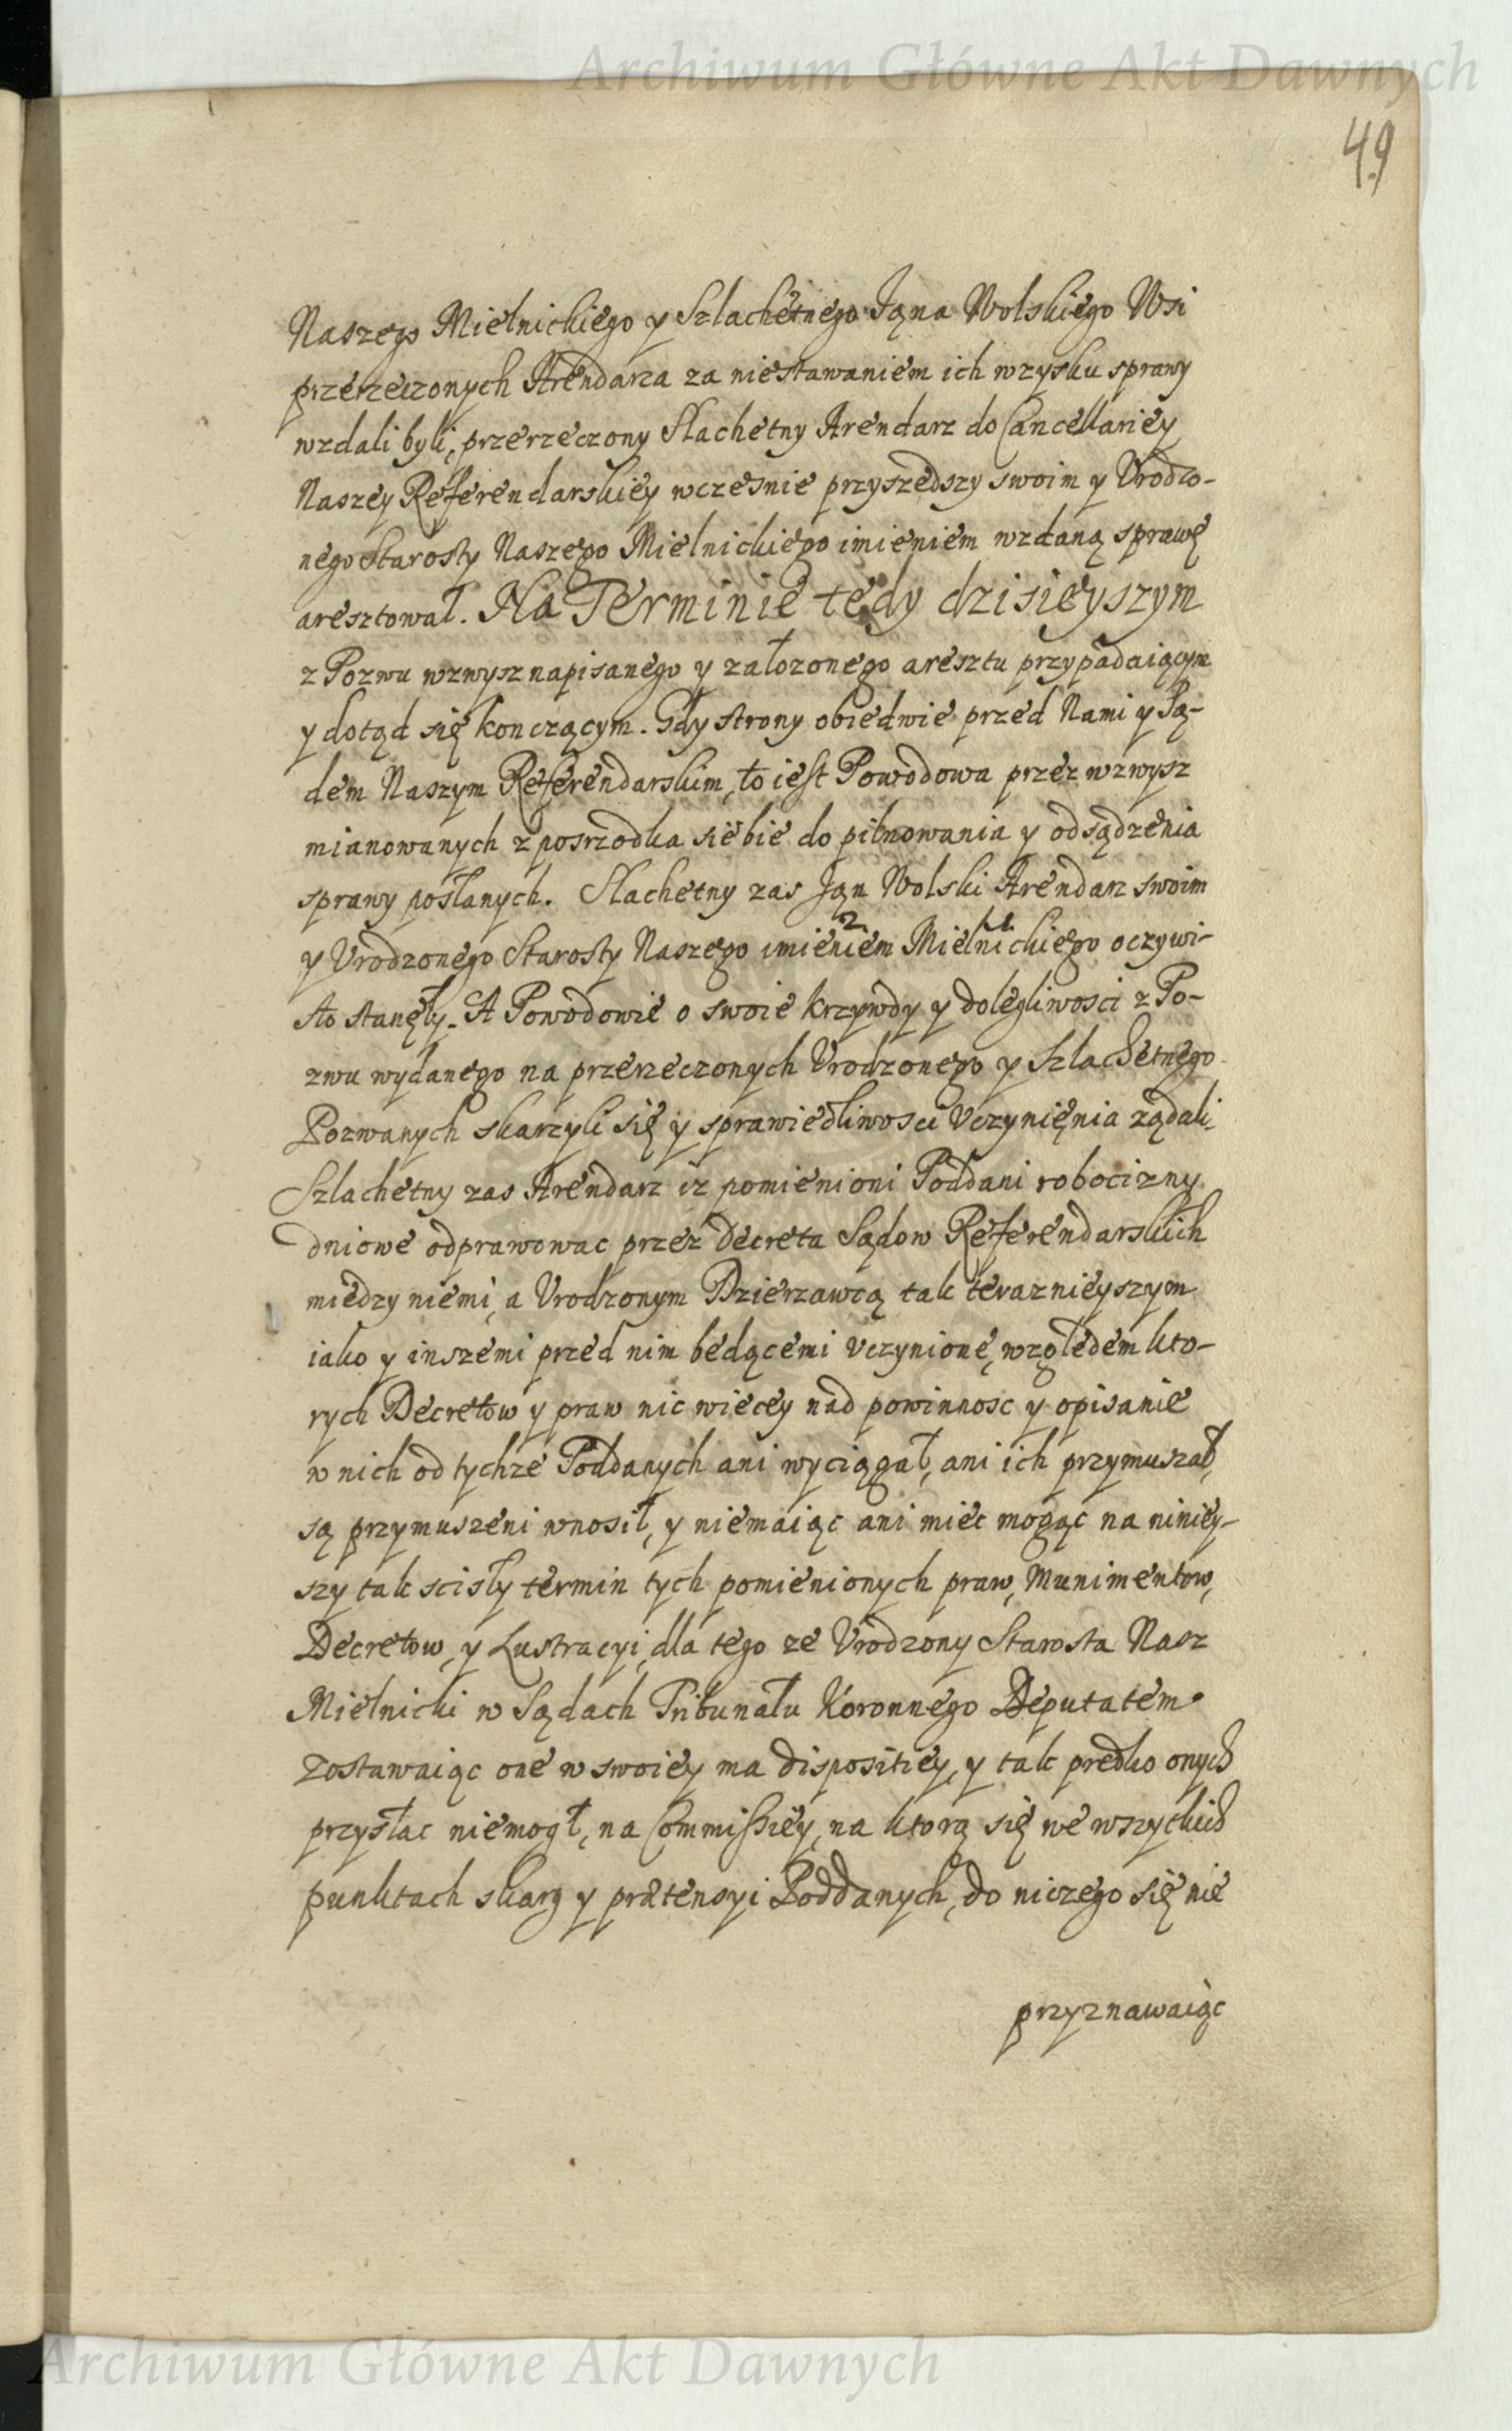 Archiwum Główne Akt Dawnych
49
Naszego Mielnickiego y Szlachetnego Jana Wolskiego Wsi
przerzeczonych Arendarza za niestawaniem ich wzysku sprawy
wzdali byli, przerzeczony Slachetny Arendarz do Cancellariey
Naszey Referendarskiey wczesnie przyszedszy swoim y Vrodzo-
nego Starosty Naszego Mielnickiego imieniem wzdaną sprawę
aresztował. Na Terminie tedy dzisieyszym
z Pozwu wzwysz napisanego y załozonego aresztu przypadaiącym
y dotąd się konczącym. Gdy strony obiedwie przed Nami y Są-
dem Naszym Referendarskim, to iest Powodowa przez wzwysz
mianowanych z posrzodka siebie do pilnowania y odsądzenia
sprawy posłanych. Slachetny zas Jan Wolski Arendarz swoim
y Vrodzonego Starosty Naszego imieniem Mielnickiego oczywi-
sto stanęły. A Powodowie o swoie krzywdy y dolegliwosci z Po-
zwu wydanego na przerzeczonych Vrodzonego y Szlachetnego
Pozwanych skarzyli się y sprawiedliwosci Vczynięnia ządali,
Szlachetny zas Arendarz iz pomienioni Poddani robocizny
dniowe odprawowac przez Decreta Sądow Referendarskich
miedzy niemi, a Vrodzonym Dzierzawcą tak teraznieyszym
iako y inszemi przed nim będącemi vczynionę, względem kto-
rych Decretow y praw nic wiecey nad powinnosc y opisanie
w nich od tychze Poddanych ani wyciągał, ani ich przymuszał,
są przymuszeni wnosił, y niemaiąc ani miec mogąc na niniey-
szy tak scisły termin tych pomienionych praw, Munimentow,
Decretow, y Lustracyi, dla tego ze Vrodzony Starosta Nasz
Mielnicki w Sądach Tribunału Koronnego Deputatem
zostawaiąc one w swoiey ma dispositiey, y tak prędko onych
przysłac niemogł, na Commissiey, na ktorą się we wszytkich
punktach skarg y prætensyi Poddanych, do niczego się nie
przyznawaiąc
Archiwum Główne Akt Dawnych